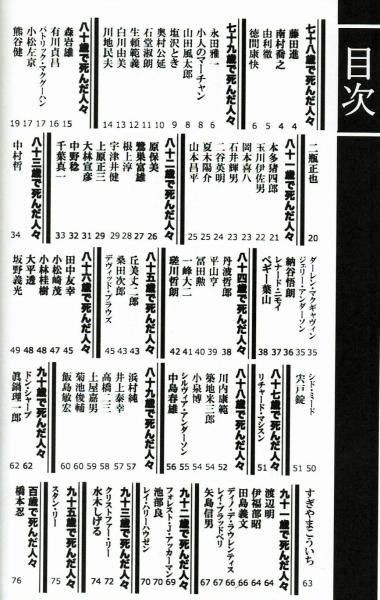 目次
七十八歳で死んだ人々
藤田進 4
南村喬之 4
由利徹 5
徳間康快 6
七十九歳で死んだ人々
永田雅一 6
小人のマーチャン 8
山田風太郎 8
塩沢とき 9
奥村公延 10
石堂淑朗 11
生頼範義 12
白川由美 13
川地民夫 14
八十歳で死んだ人々
森岩雄 15
有川貞昌 16
パトリック・マクグーハン 17
小松左京 17
熊谷健 19
二瓶正也 20
八十一歳で死んだ人々
本多猪四郎 21
玉川伊佐男 22
岡本喜八 22
石井輝男 23
二谷英明 24
夏木陽介 25
山本昌平 25
八十二歳で死んだ人々
原保美 26
鷺巣富雄 27
根上淳 28
宇津井健 29
上原正三 31
大林宣彦 31
中野稔 32
千葉真一 33
八十三歳で死んだ人々
中村哲 34
ダーレン・マクギャヴィン 35
ジェリー・アンダーソン 35
納谷悟朗 36
レナード・ニモイ 37
ペギー葉山 38
八十四歳で死んだ人々
丹波哲郎 38
平山亨 39
冨田勲 40
一峰大二 41
瑳川哲朗 42
八十五歳で死んだ人々
丘美丈二郎 43
桑田次郎 43
デヴィッド・プラウズ 45
八十六歳で死んだ人々
田中友幸 45
小松崎茂 47
小林桂樹 48
大平透 48
坂野義光 49
シド・ミード 50
宍戸錠 51
八十七歳で死んだ人々
リチャード・マシスン 51
八十八歳で死んだ人々
川内康範 52
築地米三郎 54
小泉博 54
シルヴィア・アンダーソン 55
中島春雄 56
八十九歳で死んだ人々
浜村純 57
井上泰幸 57
高橋二三 58
土屋嘉男 58
菊池俊輔 60
飯島敏宏 60
九十歳で死んだ人々
ドン・シャープ 62
眞鍋理一郎 62
すぎやまこういち 63
九十一歳で死んだ人々
渡辺明 64
伊福部昭 64
田島義文 66
ディノ・デ・ラウレンティス 66
レイ・ブラッドベリ 67
矢島信男 67
九十二歳で死んだ人々
フォレスト・J・アッカーマン 69
池部良 70
レイ・ハリーハウゼン 70
九十三歳で死んだ人々
クリストファー・リー 72
水木しげる 74
九十五歳で死んだ人々
スタン・リー 75
百歳で死んだ人々
橋本忍 76